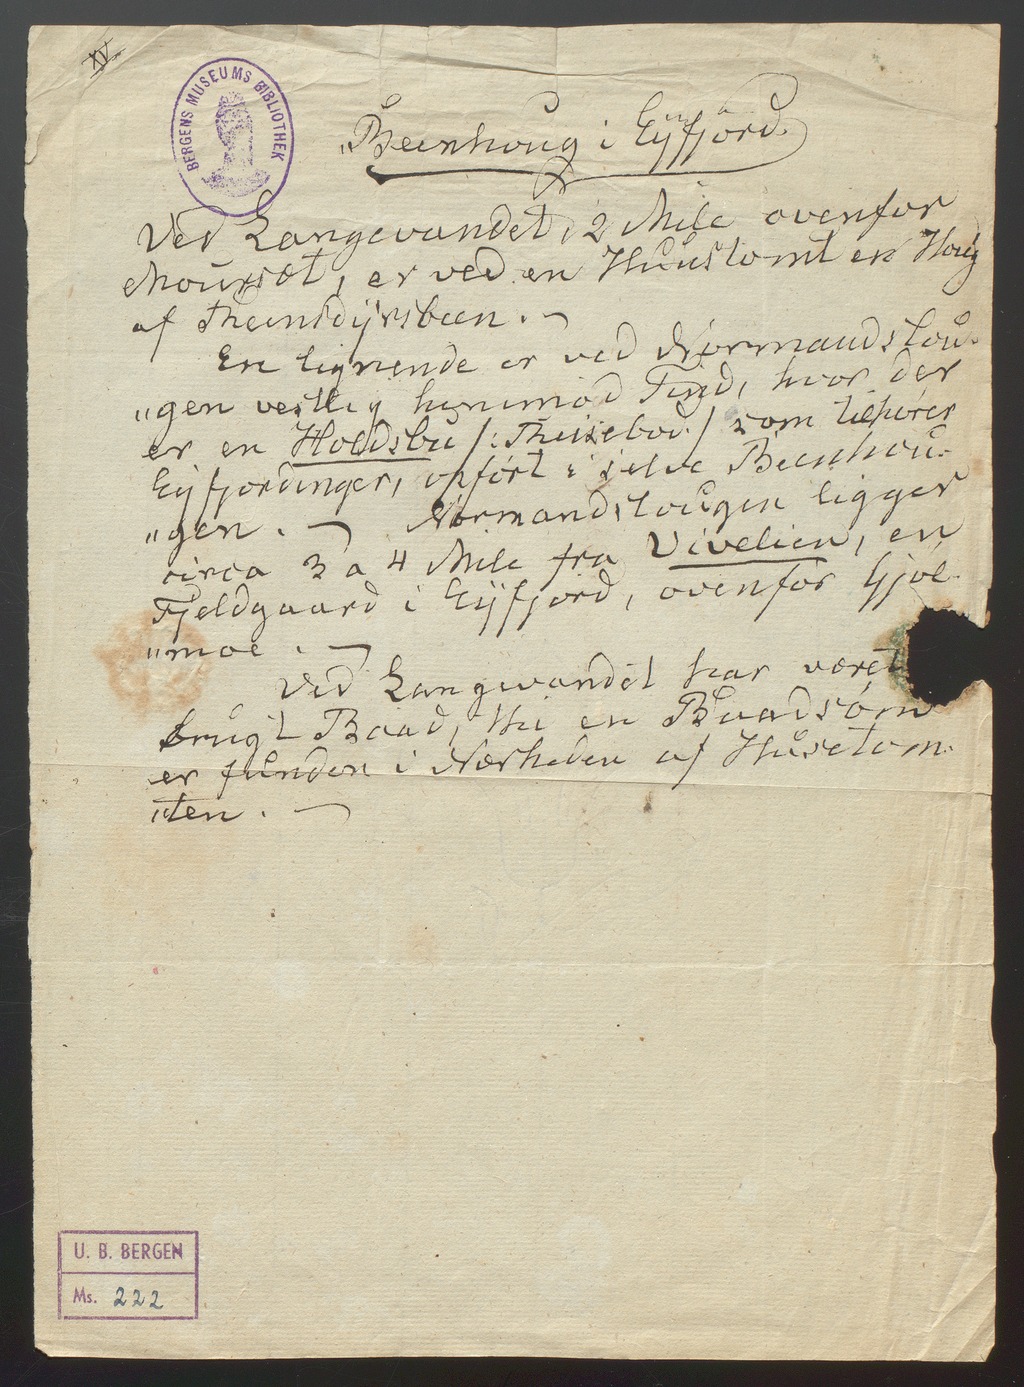 XV.
BERGENS MUSEUMS BIBLIOTHEK
„Beenhoug i Eyfjörd.
Ved Langevandet, 2 Mile ovenfor
Moursæt, er ved en Huustomt en Houg
af Rheensdyrsbeen. —
En lignende er ved Normandslou-
„gen vestlig henimod Tind, hvor der
er en Holdsbu /: Steenebod :/ som tilhører
Eyfjordinger, opført i selve Beenhou-
„gen. — Normandslougen ligger
circa 3 a 4 Mile fra Vivelien, en
Fjeldgaard i Eyfjord, ovenfor Hjøl-
„moe. —
Ved Langevandet har været
brugt Baad, thi en Baadsøm
er funden i Nærheden af Husetom-
„ten. —
U. B. BERGEN
Ms. 222